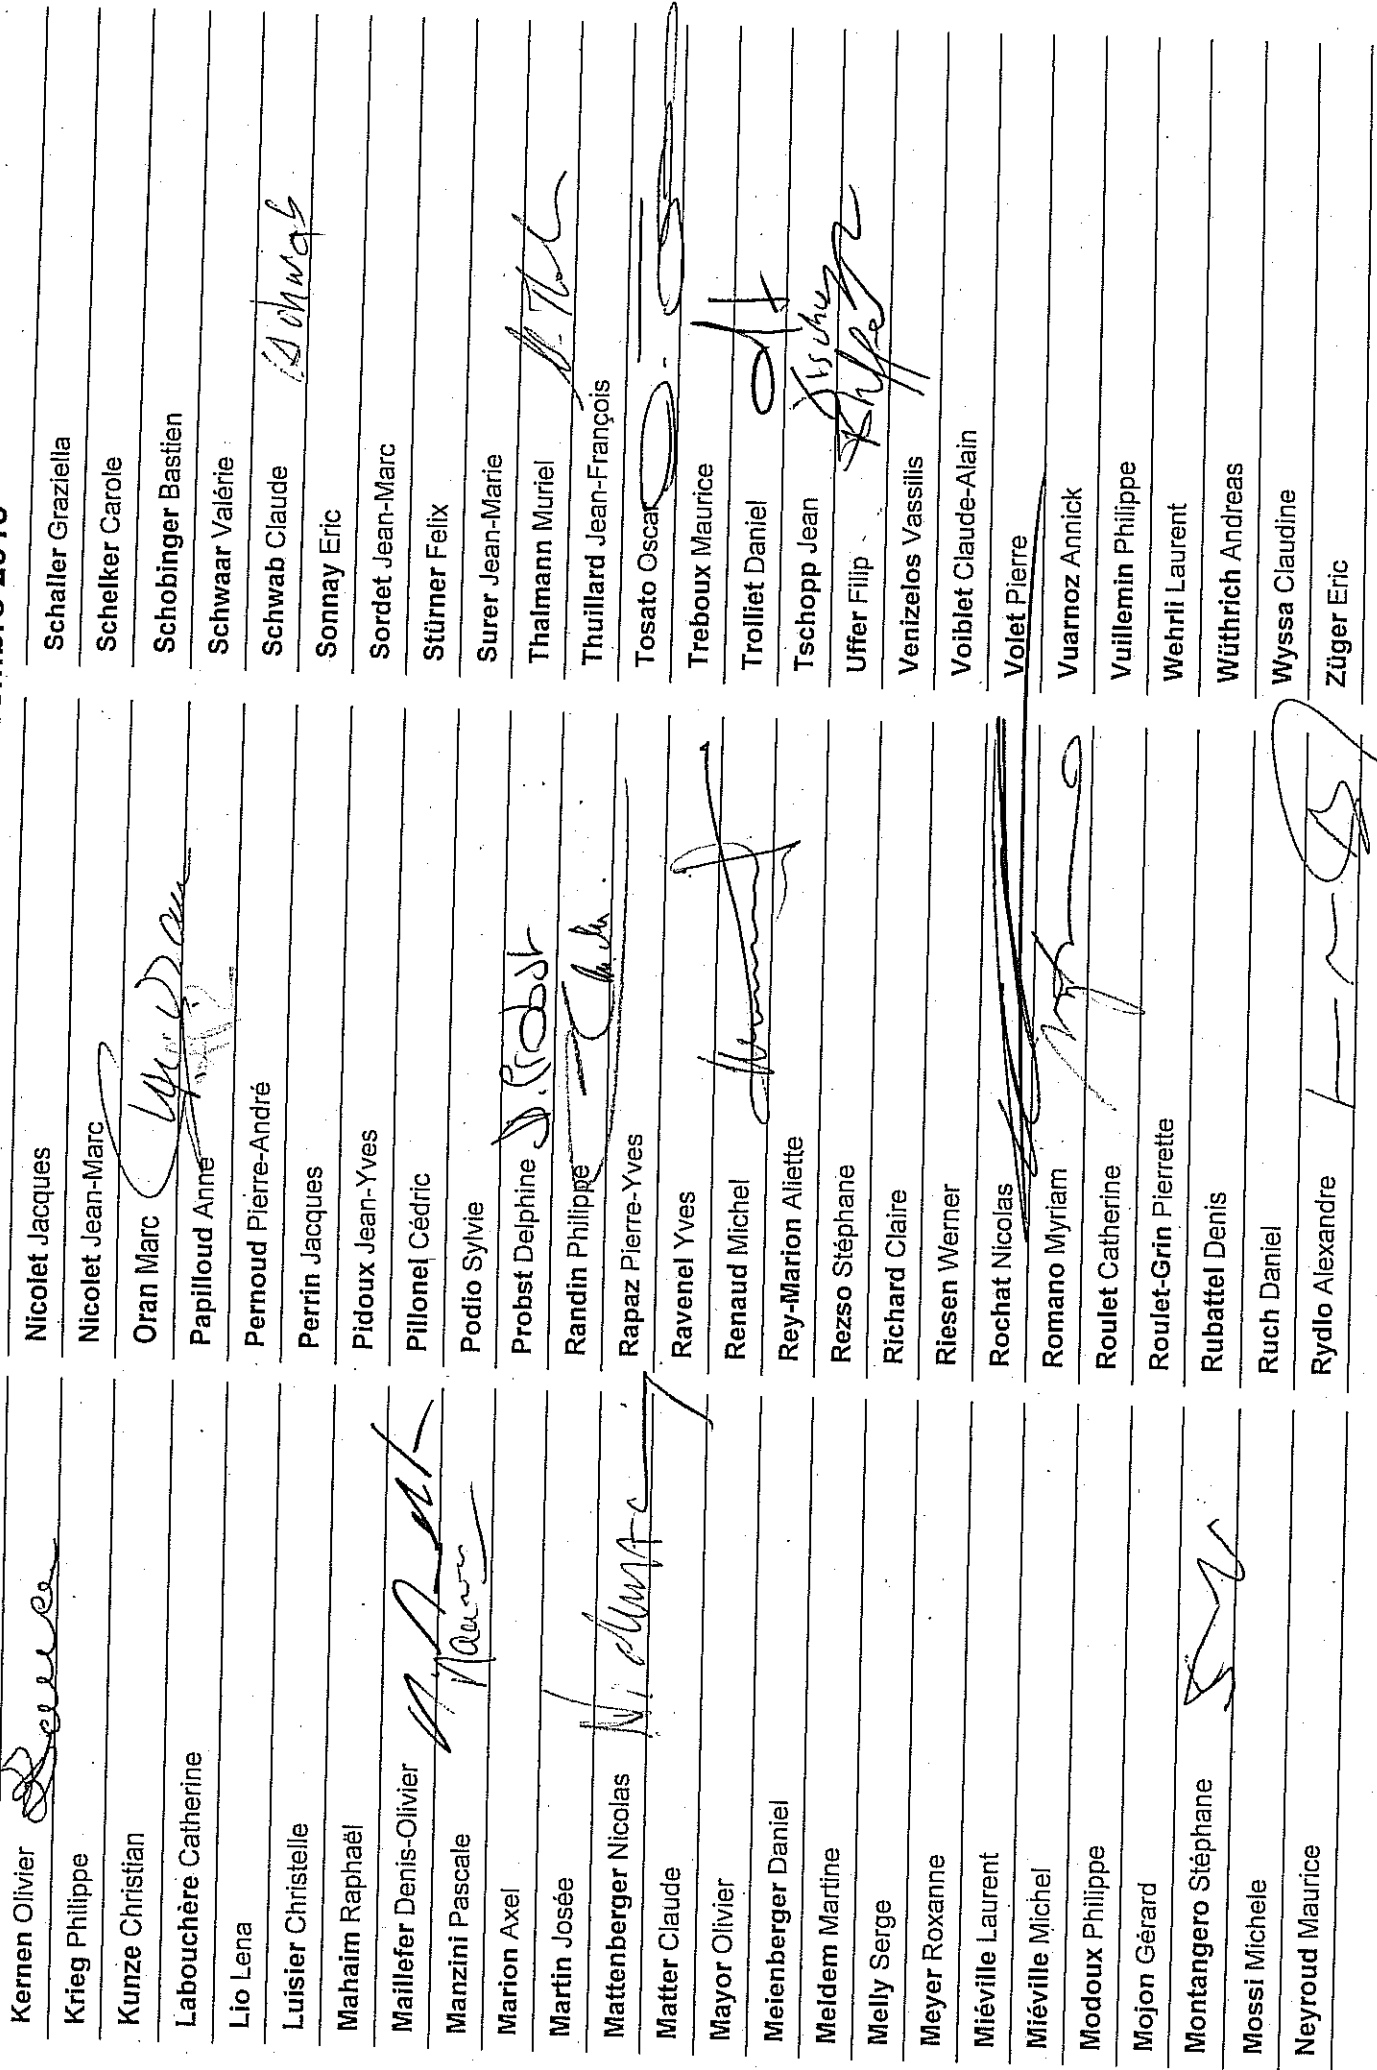 Kernen Olivier
Krieg Philippe
Kunze Christian
Labouchère Catherine
Lio Lena
Luisier Christelle
Mahaim Raphaël
Maillefer Denis-Olivier
Manzini Pascale
Marion Axel
Martin Josée
Mattenberger Nicolas
Matter Claude
Mayor Olivier
Meienberger Daniel
Meldem Martine
Melly Serge
Meyer Roxanne
Miéville Laurent
Miéville Michel
Modoux Philippe
Mojon Gérard
Montangero Stéphane
Mossi Michele
Neyroud Maurice
Nicolet Jacques
Nicolet Jean-Marc
Oran Marc
Papilloud Anne
Pernoud Pierre-André
Perrin Jacques
Pidoux Jean-Yves
Pillonel Cédric
Podio Sylvie
Probst Delphine D. Probst
Randin Philippe
Rapaz Pierre-Yves
Ravenel Yves
Renaud Michel
Rey-Marion Aliette
Rezso Stéphane
Richard Claire
Riesen Werner
Rochat Nicolas
Romano Myriam
Roulet Catherine
Roulet-Grin Pierrette
Rubattel Denis
Ruch Daniel
Rydlo Alexandre
Schaller Graziella
Schelker Carole
Schobinger Bastien
Schwaar Valérie
Schwab Claude
Sonnay Eric
Sordet Jean-Marc
Stürner Felix
Surer Jean-Marie
Thalmann Muriel
Thuillard Jean-François
Tosato Oscar
Treboux Maurice
Trolliet Daniel
Tschopp Jean
Uffer Filip
Venizelos Vassilis
Voiblet Claude-Alain
Volet Pierre
Vuarnoz Annick
Vuillemin Philippe
Wehrli Laurent
Wüthrich Andreas
Wyssa Claudine
Züger Eric